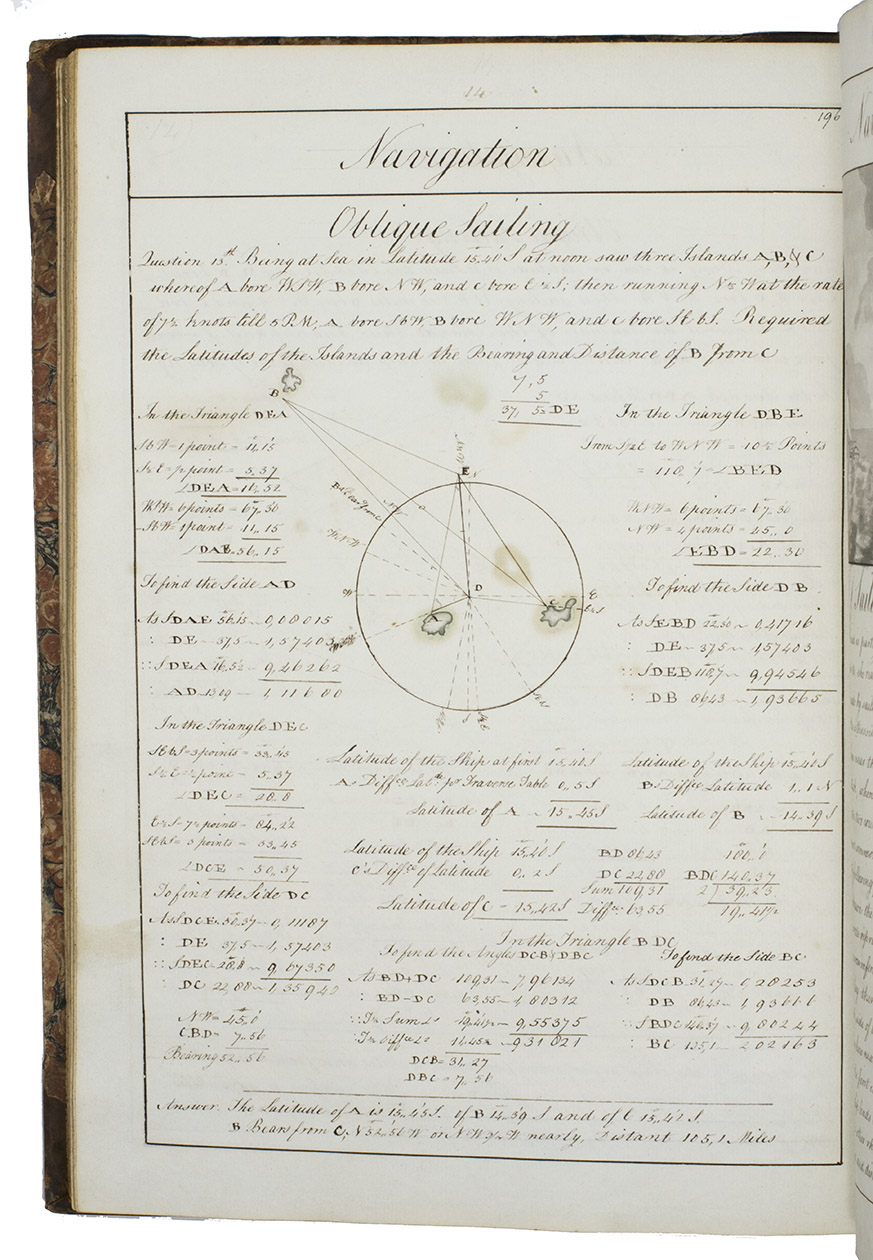 14
196
Navigation
Oblique Sailing
Question 13th Being at Sea in Latitude 15,,40 S at noon saw three Islands A, B, & C
whereof A bore WSW, B bore NW, and C bore E½S; then running N½W at the rate
of 7½ knots till 5 PM, A bore SbW, B bore WNW, and C bore SEbS. Required
the Latitudes of the Islands and the Bearing and Distance of B from C
7,5
5
37,5 = DE
In the Triangle DEA
SbW = 1 point = 11,,15
S½E = ½ point = 5,,37
∠DEA = 16,,52
WSW = 6 points = 67,,30
SbW = 1 point = 11,,15
∠DAE = 56,,15
To find the Side AD
As S DAE 56,,15 – 0,08015
: DE – 37,5 – 1,57403
:: S DEA 16,,52 – 9,46262
: AD – 13,09 – 1,11680
In the Triangle DEC
SEbS = 3 points = 33,,45
S½E ½ point = 5,,37
∠DEC = 28,,8
E½S = 7½ points = 84,,22
SEbS = 3 points = 33,,45
∠DCE = 50,,37
To find the Side DC
As S DCE 50,,37 – 0,11187
: DE 37,5 – 1,57403
:: S DEC 28,,8 – 9,67350
: DC 22,88 – 1,35940
NW = 45,,0
CBD = 7,,56
Bearing 52,,56
B
E
D
A
C
W
E
S
WNW
In the Triangle DBE
From S½E to WNW = 10½ Points
= 118,,7 = ∠BED
WNW = 6 points = 67,,30
NW = 4 points = 45,,0
∠EBD = 22,,30
To find the Side DB
As S EBD 22,,30 – 0,41716
: DE – 37,5 – 1,57403
:: S DEB 118,,7 – 9,94546
: DB 86,43 – 1,93665
Latitude of the Ship at first 15,,40 S
A's Diffce Latde pr Traverse Table 0,,5 S
Latitude of A – 15,,45 S
Latitude of the Ship 15,,40 S
B's Diffce Latitude 1,,1 N
Latitude of B – 14,,39 S
Latitude of the Ship 15,,40 S
C's Diffce of Latitude 0,,2 S
Latitude of C = 15,,42 S
BD 86,43
DC 22,88
Sum 109,31
Diffce 63,55
180,,0
BDC 140,,37
2) 39,,23
19,,41½
In the Triangle BDC
To find the Angles DCB & DBC
As BD+DC 109,31 – 7,96134
: BD–DC 63,55 – 1,80312
:: Tn Sum ∠s 19,,41½ – 9,55375
: Tn Diffce ∠s 11,,45½ – 9,31821
DCB = 31,,27
DBC = 7,,56
To find the Side BC
As S DCB 31,,27 – 0,28253
: DB 86,43 – 1,93666
:: S BDC 140,,37 – 9,80244
: BC 105,1 – 2,02163
Answer. The Latitude of A is 15,,45 S. of B 14,,39 S and of C 15,,42 S.
B Bears from C, N 52,,56 W or NW¾W nearly, Distant 105,1 Miles